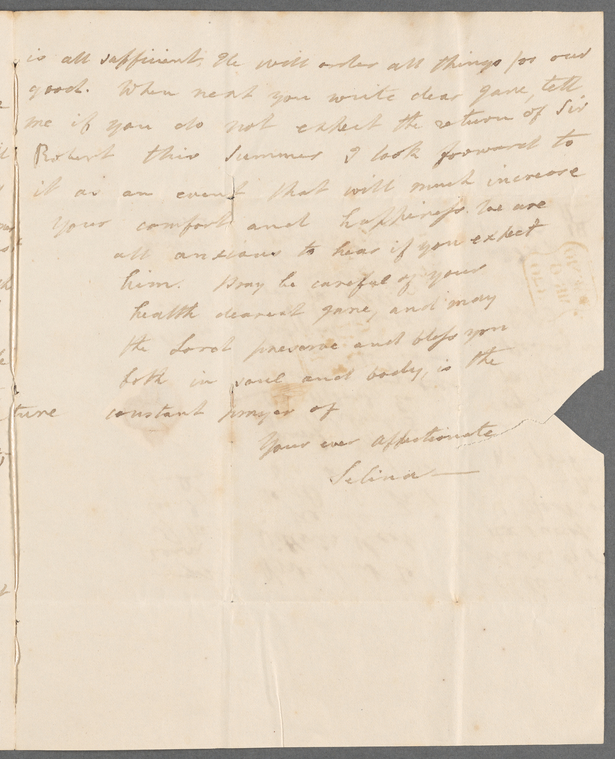 is all sufficient, He will order all things for our
good. When next you write dear Jane, tell
me if you do not expect the return of Sir
Robert this Summer I look forward to
it as an event that will much increase
your comfort and happiness. We are
all anxious to hear if you expect
him. Pray be careful of your
health dearest Jane, and may
the Lord preserve and bless you
both in soul and body, is the
constant prayer of
Your ever affectionate
Selina
ture